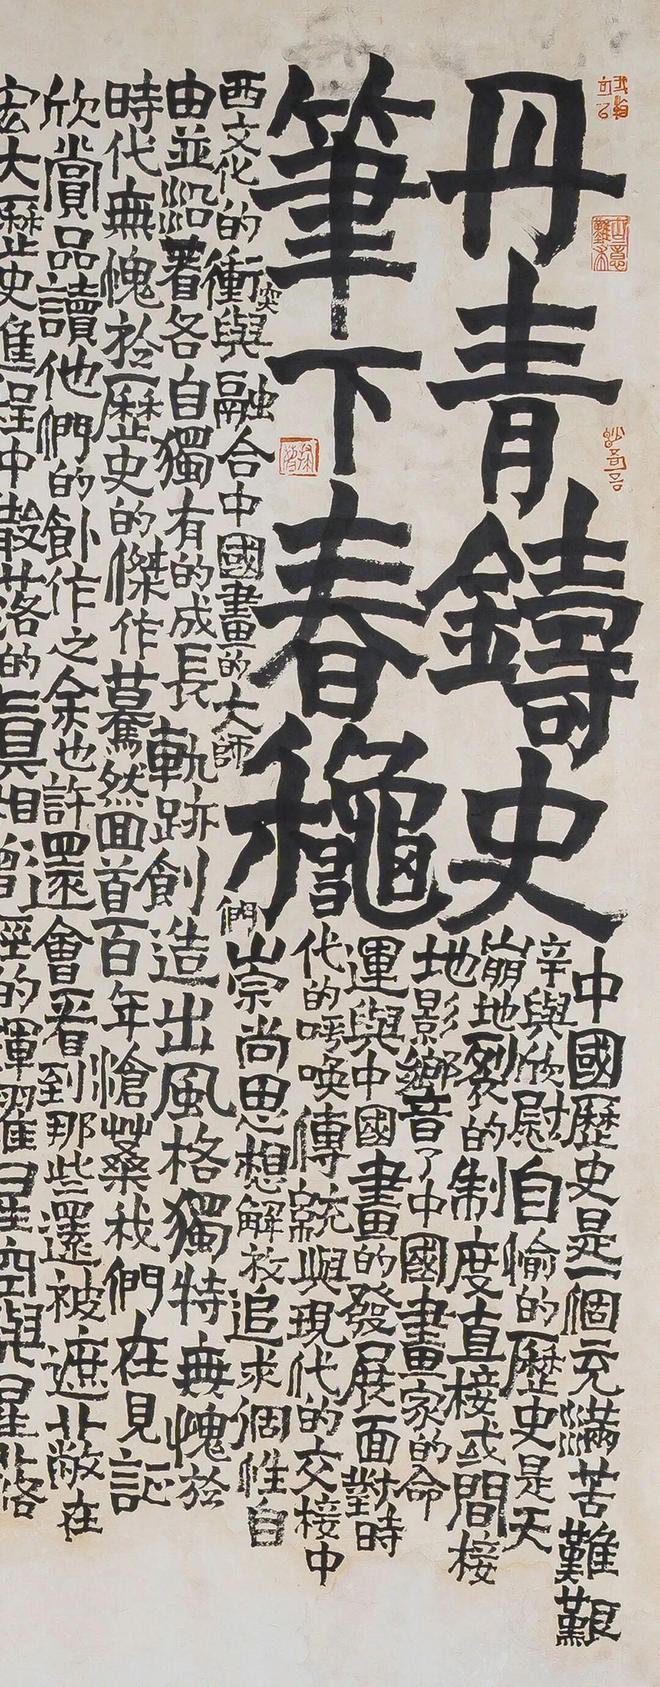 丹青鑄史
筆下春穐
中國歷史是一個充滿苦難艱
辛與欣慰自愉的歷史是天
崩地裂的制度直接或間接
地影鄉音了中國畫家的命
運與中國畫的發展面對時
代的呼喚傳統與現代的交接中
西文化的衝突與融合中國畫的大師們崇尚思想解放追求個性自
由並沿著各自獨有的成長軌跡創造出風格獨特無愧於
時代無愧於歷史的傑作驀然回首百年滄桑我們在見証
欣賞品讀他們的創作之余也許還會看到那些還被遮蔽在
宏大歷史進程中散落的真相曾經的輝耀星空與星落